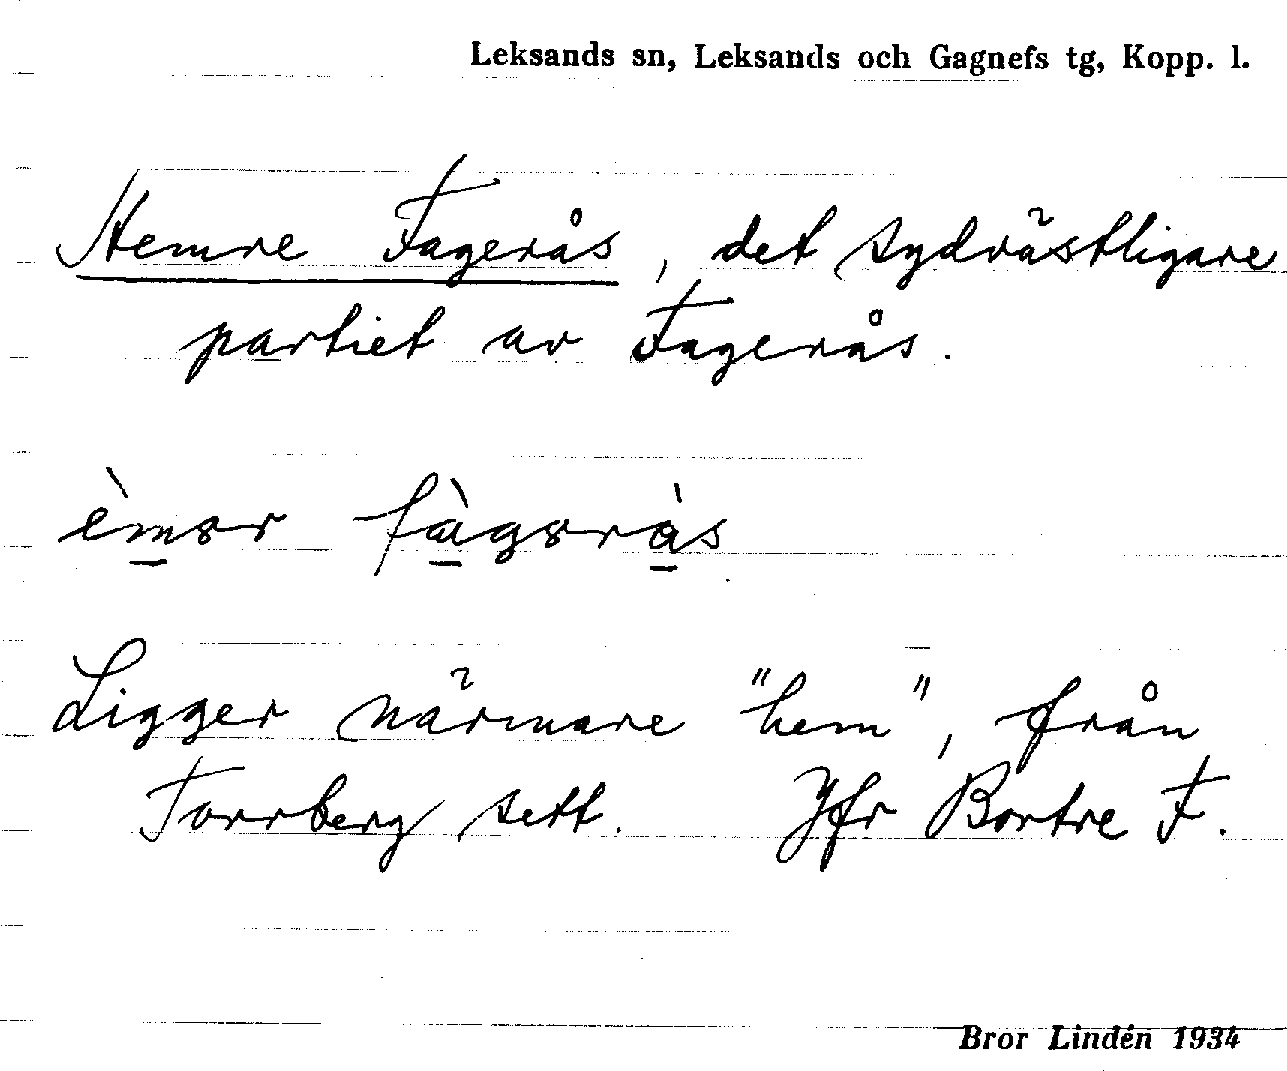 Leksands sn, Leksands och Gagnefs tg, Kopp. l.
Hemre Fagerås, det sydvästligare
partiet av Fagerås.
èmər fàgəràs
Ligger närmare "hem", från
Torrberg sett. Jfr Bortre F.
Bror Lindén 1934